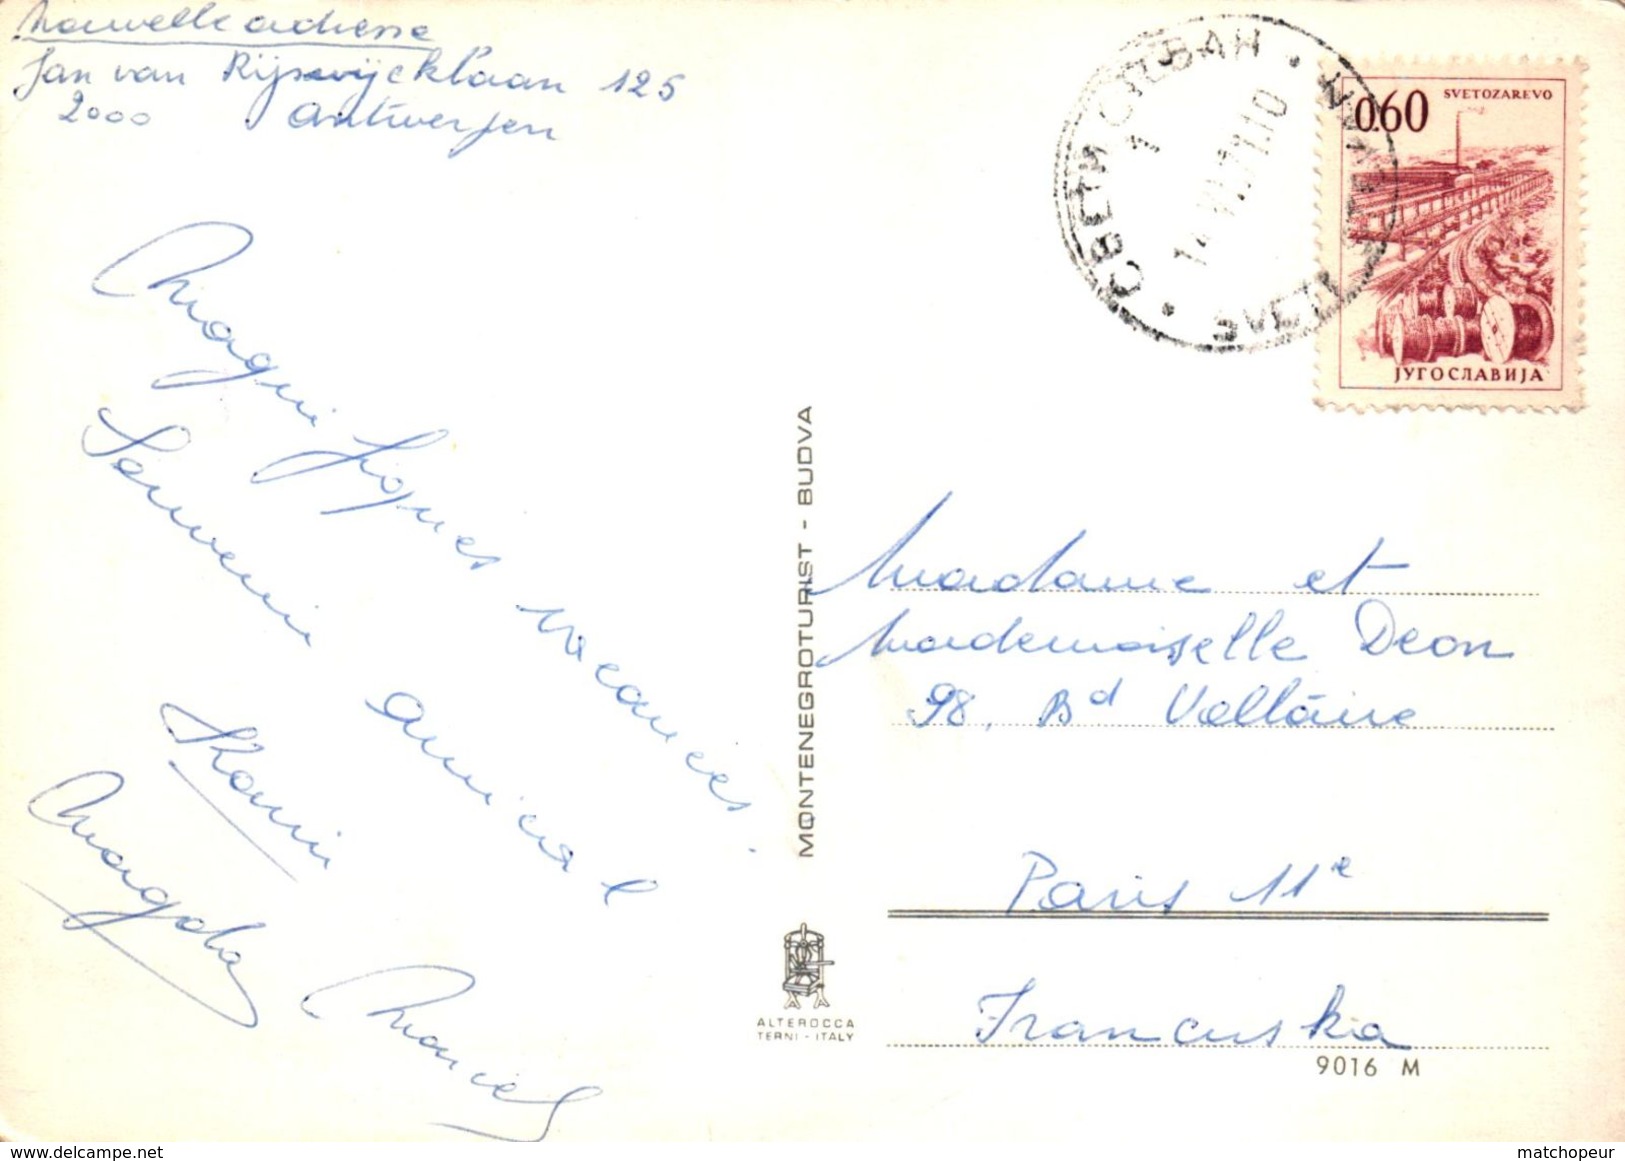 Nouvelle adresse
Jan van Rijswijcklaan 125
2000 Antwerpen
Magnifiques vacances.
Souvenir amical
Magda Marcel
MONTENEGROTURIST - BUDVA
ALTEROCCA
TERNI - ITALY
СВЕТИ СТЕВАН
SVETI
SVETOZAREVO
0.60
ЈУГОСЛАВИЈА
Madame et
Mademoiselle Deon
98, Bd Voltaire
Paris 11e
Francuska
9016 M
www.delcampe.net
matchopeur